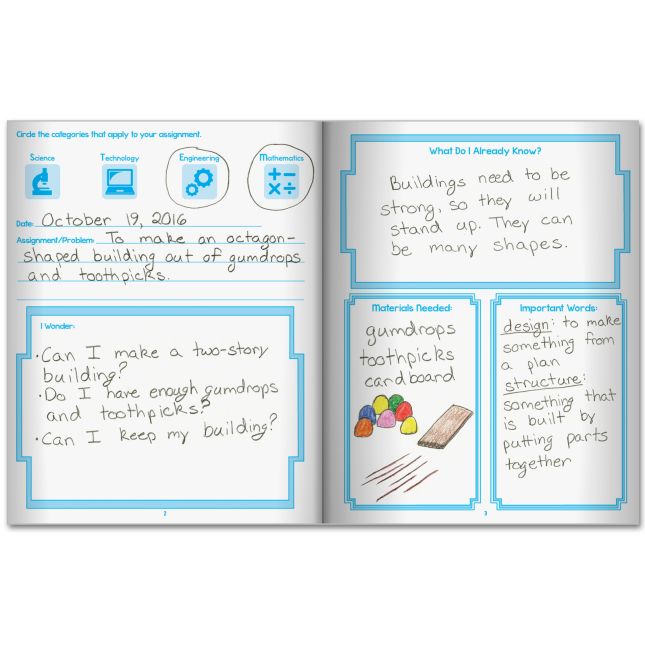 Circle the categories that apply to your assignment.
Science
Technology
Engineering
Mathematics
Date: October 19, 2016
Assignment/Problem: To make an octagon-
shaped building out of gumdrops
and toothpicks.
I Wonder:
•Can I make a two-story
building?
•Do I have enough gumdrops
and toothpicks?
•Can I keep my building?
2
What Do I Already Know?
Buildings need to be
strong, so they will
stand up. They can
be many shapes.
Materials Needed:
gumdrops
toothpicks
cardboard
Important Words:
design: to make
something from
a plan
structure:
something that
is built by
putting parts
together
3